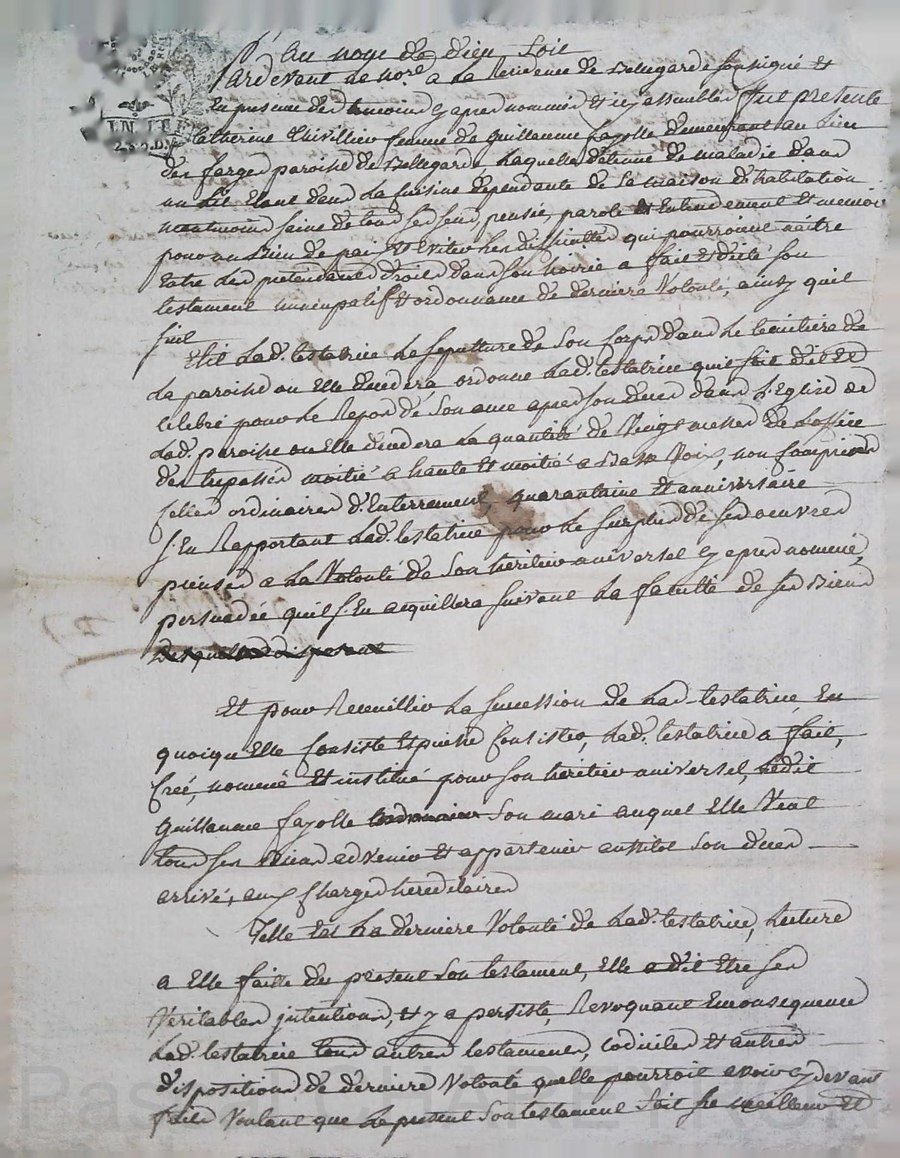 Au nom de dieu soit
Pardevant le nore a la Residence de Bellegarde soussigné et
En presence des temoins cy apres nommés et icy assembles fut presente
Catherine femme de Guillaume fayolle demeurant au Lieu
des farges paroisse de Bellegarde Laquelle detenue de maladie dans
un Lit Etant dans La Cuisine dépendante de la maison d'habitation
neatmoins saine de tous ses sens, pensée, parole et Entendement et memoire
pour au Bien de paix et Eviter les difficultes qui pourroient naitre
Entre les pretendants droit dans son hoirie a fait et dicté son
testament nuncupatif et ordonnance de derniere Volonté, ainsy quil
suit
Elit lad. testatrice La sepulture de son Corps dans le Cimitiere de
La paroisse ou Elle decedera ordonne lad. testatrice quil soit dit et
Celebré pour le Repos de son ame apres son deces dans L'Eglise de
Lad. paroisse ou Elle decedera La quantité de Vingt messes de Loffice
des trepassés moitié a haute et moitié a Basse Voix, non Compris
Celles ordinaires d'Enterrement, quarantaine et anniversaire
S'En Rapportant lad. testatrice pour le surplus de ses oeuvres
pieuses a La Volonté de son héritier universel cy apres nommé,
persuadée quil s'En acquittera suivant La faculté de ses Biens
desquels disposant
Et pour Recueillir La succession de Lad. testatrice, En
quoiqu'Elle Consiste et puisse Consister, lad. testatrice a fait,
Créé, nommé et institué pour son héritier universel, ledit
Guillaume fayolle son mari auquel Elle Veut
tous ses Biens advenir et appartenir aussitot son deces
arrivé, aux Charges hereditaires
Telle est La derniere Volonté de Lad. testatrice, Lecture
a Elle faitte du present son testament, Elle a dit Etre ses
Veritables intentions, et y a persisté, Revoquant En consequence
Lad. testatrice tous autres testaments, Codiciles et autres
dispositions de derniere Volonté quelle pourroit avoir cy devant
faites Voulant que Le present son testament soit le meilleur et